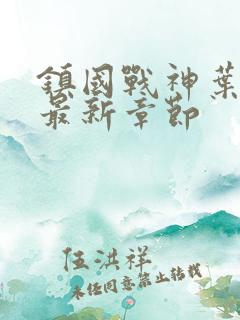 鎮國戰神葉
最新章節
伍洪祥
未經同意禁止轉載